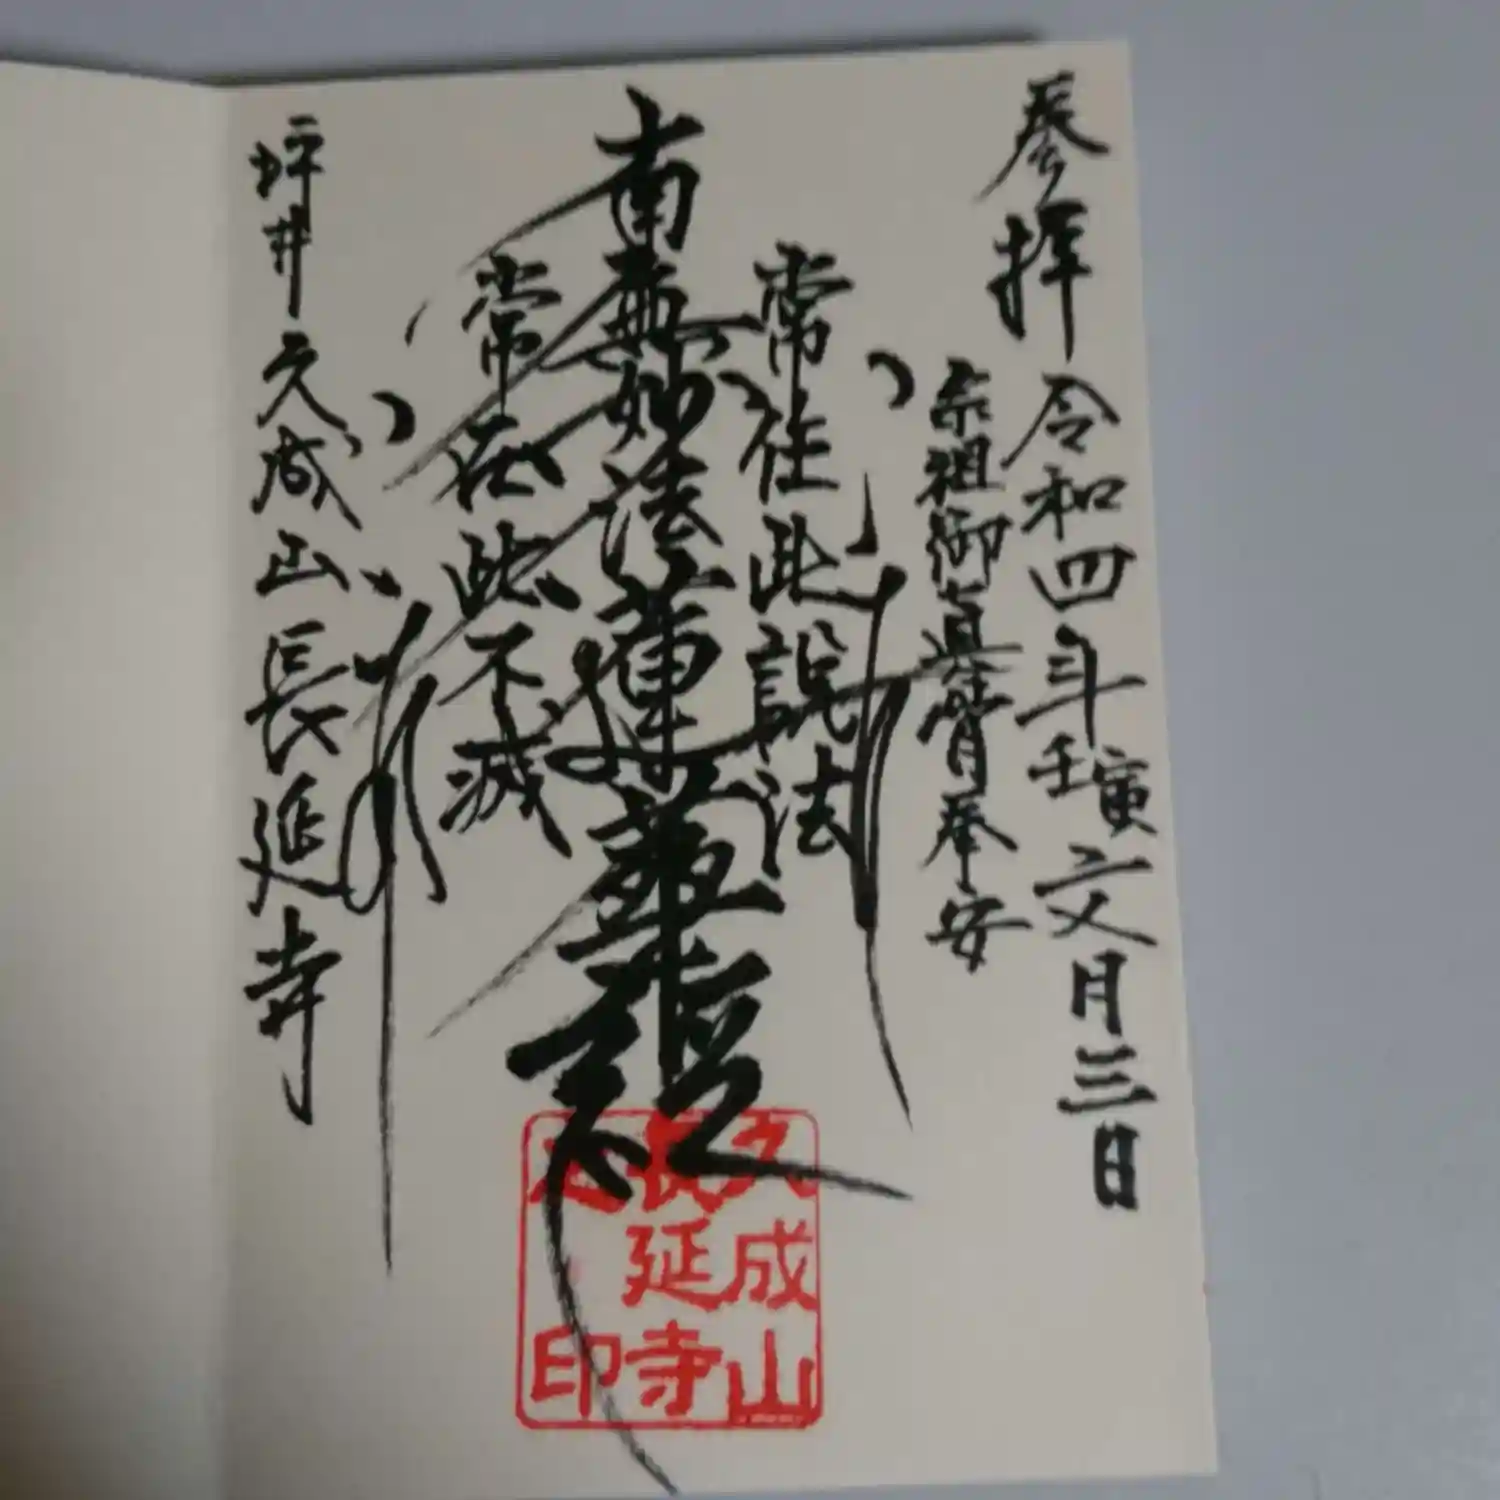 参拝
令和四年壬寅六月三日
宗祖御真骨奉安
常住此説法
南無妙法蓮華経
常在此不滅
坪井久成山長延寺
久成山
長延寺
印